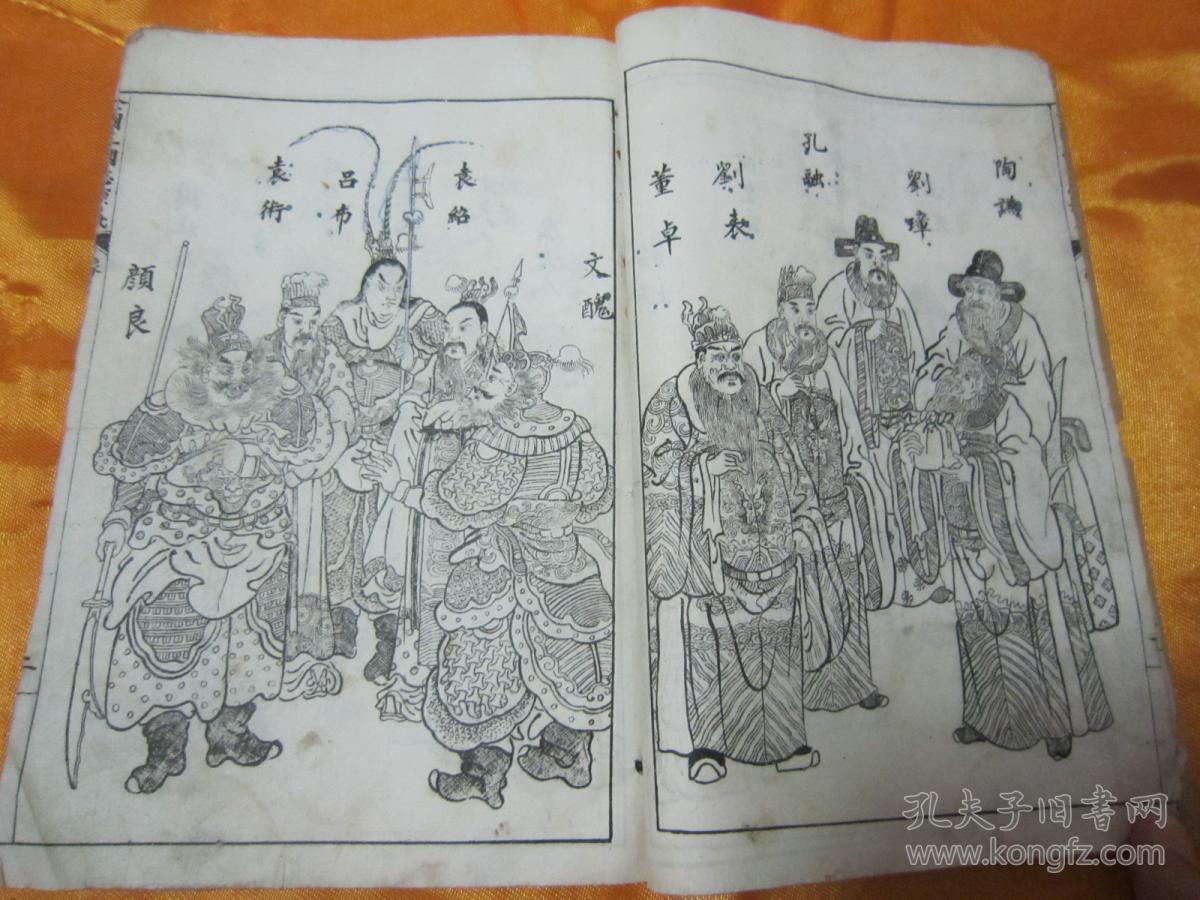 陶謙
劉璋
孔融
劉表
董卓
文醜
袁紹
呂布
袁術
顔良
二
孔夫子旧書网
www.kongfz.com